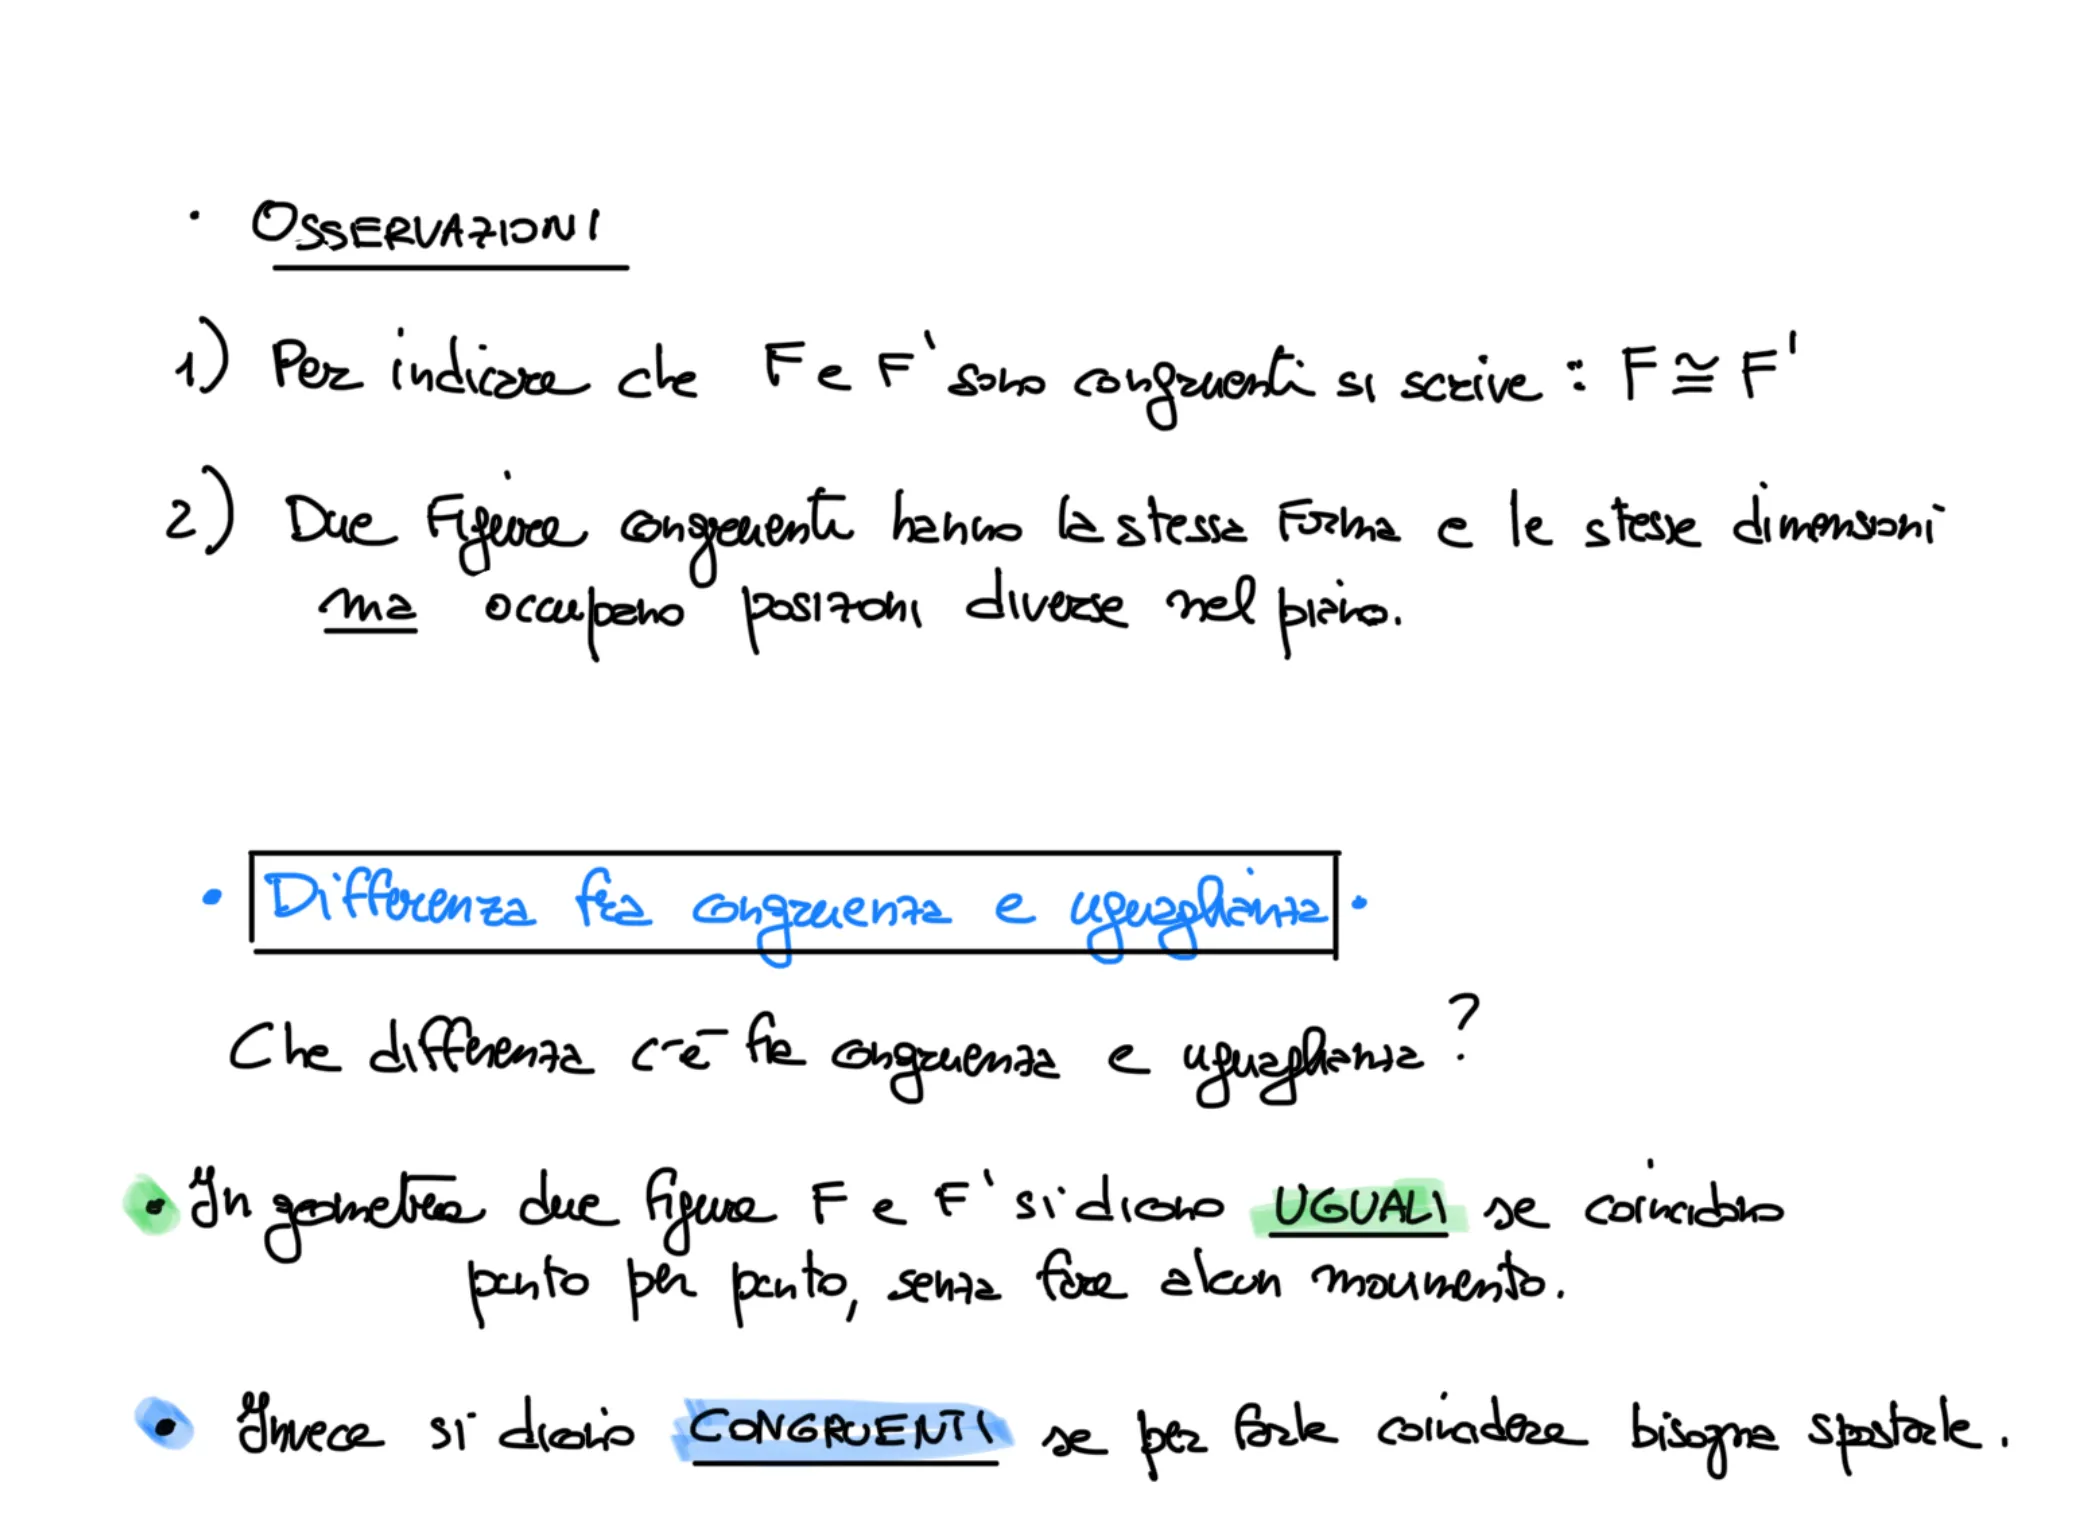 · OSSERVAZIONI
1) Per indicare che F e F' sono congruenti si scrive : F ≅ F'
2) Due Figure congruenti hanno la stessa Forma e le stesse dimensioni
ma occupano posizioni diverse nel piano.
• Differenza fra congruenza e uguaglianza •
Che differenza c'è fra congruenza e uguaglianza ?
• In geometria due figure F e F' si dicono UGUALI se coincidono
punto per punto, senza fare alcun movimento.
• Invece si dicono CONGRUENTI se per farle coincidere bisogna spostarle.